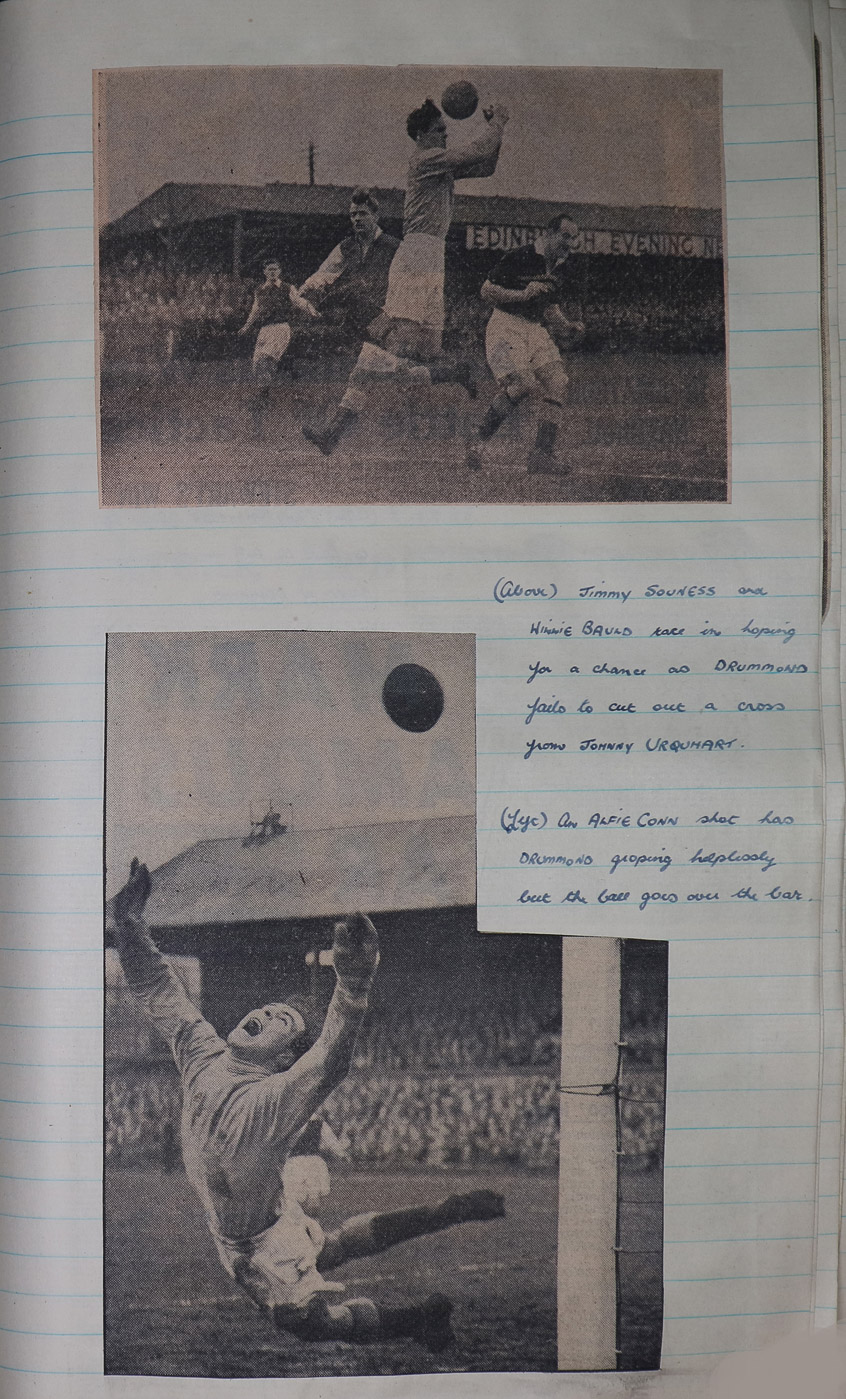 EDINBURGH EVENING NE
(Above) Jimmy SOUNESS and
WINNIE BAULD race in hoping
for a chance as DRUMMOND
fails to cut out a cross
from JOHNNY URQUHART.
(Left) An ALFIE CONN shot has
DRUMMOND groping helplessly
but the ball goes over the bar.